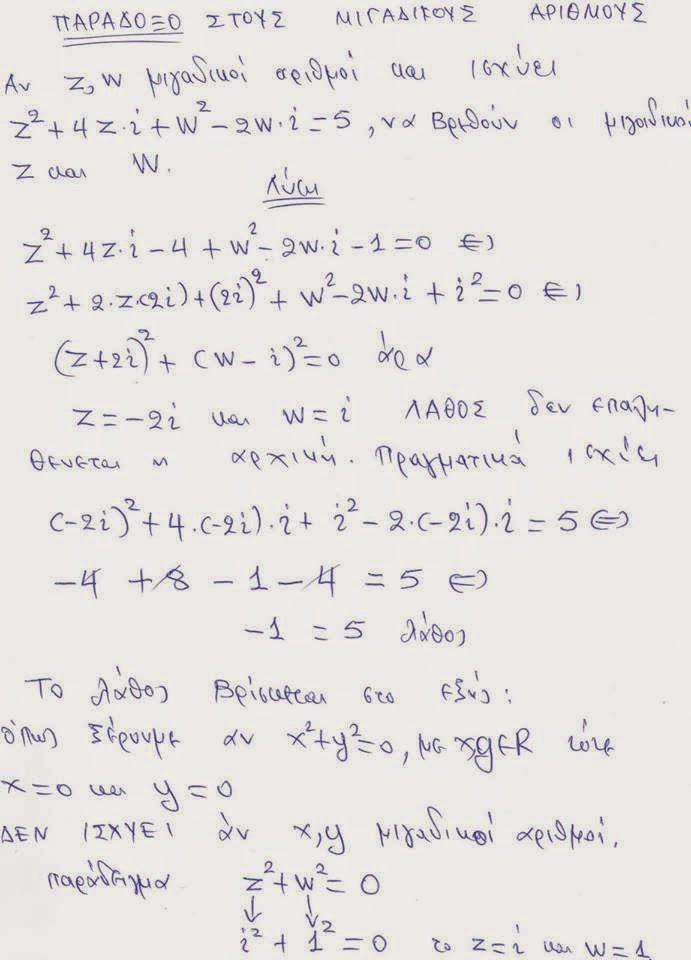 ΠΑΡΑΔΟΞΟ ΣΤΟΥΣ ΜΙΓΑΔΙΚΟΥΣ ΑΡΙΘΜΟΥΣ
Αν z,w μιγαδικοί αριθμοί και ισχύει
z²+4z·i+w²-2w·i=5, να βρεθούν οι μιγαδικοί
z και w.
Λύση
z²+4z·i-4+w²-2w·i-1=0 ⇔
z²+2·z·(2i)+(2i)²+w²-2w·i+i²=0 ⇔
(z+2i)²+(w-i)²=0 άρα
z=-2i και w=i ΛΑΘΟΣ δεν επαλη-
θευεται η αρχική. Πραγματικά ισχύει
(-2i)²+4·(-2i)·i+i²-2·(-2i)·i=5 ⇔
-4+8-1-4=5 ⇔
-1=5 λάθος
Το λάθος βρίσκεται στο εξής:
όπως ξέρουμε αν x²+y²=0, με x,y∈R τότε
x=0 και y=0
ΔΕΝ ΙΣΧΥΕΙ άν x,y μιγαδικοί αριθμοί.
παράδειγμα z²+w²=0
↓ ↓
i²+1²=0 το z=i και w=1